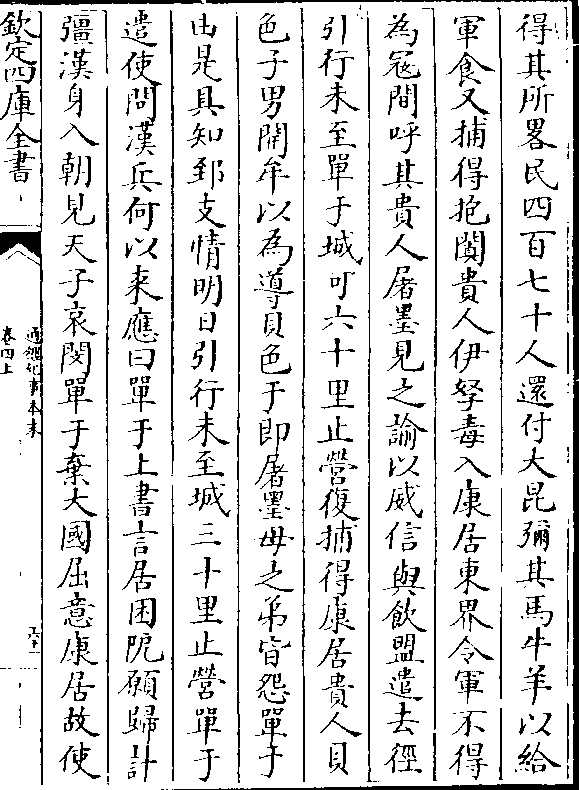 得其所畧民四百七十人還付大昆彌其馬牛羊以給
軍食又捕得抱闐貴人伊孥毒入康居東界令軍不得
為冦間呼其貴人屠墨見之諭以威信與飲盟遣去徑
引行未至單于城可六十里止營復捕得康居貴人貝
色子男開牟以為導貝色子即屠墨母之弟皆怨單于
由是具知郅支情明日引行未至城三十里止營單于
遣使問漢兵何以来應曰單于上書言居困阨願歸計
彊漢身入朝見天子哀閔單于棄大國屈意康居故使
欽定四庫全書
通鑑紀事本末
卷四上
六十一